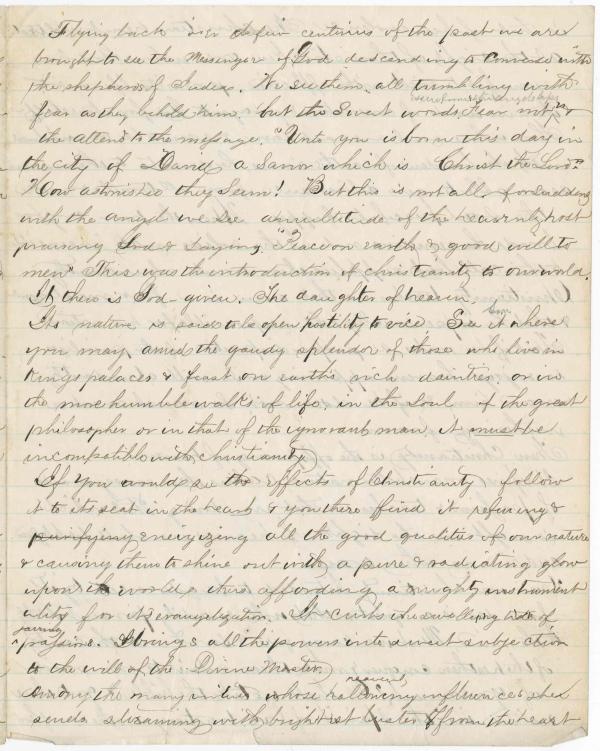 Flying back over a few centuries of the past we are
brought to see the Messenger of God descending to converse with
the shepherds of Judea. We see them all trembling with
fear as they behold him, but the sweet words, Fear not,
the attend to the message. "Unto you is born this day in
the city of David a Savior which is Christ the Lord."
How astonished they seem! But this is not all, for suddenly
with the angel we see a multitude of the heavenly host
praising God & saying, "Peace on earth & good will to
men" This was the introduction of christianity to our world.
It then is God-given. The daughter of heaven.
Its native is said to be open hostility to vice See it where
you may, amid the gaudy splendor of those who live in
kings palaces & feast on earth's rich dainties, or in
the more humble walks of life, in the soul of the great
philosopher or in that of the ignorant man, it must be
incompatible with christianity
If you would see the effects of Christianity follow
it to its seat in the heart & you there find it refining &
purifying energizing all the good qualities of our nature
& causing them to shine out with a pure & radiating glow
upon the world thus affording a mighty instrument
ality for its evangelization. It curbs the swelling tide of
passions. & brings all the powers into sweet subjection
to the will of the Divine Master,
Among the many virtues whose hallowing influences she
sends streaming with brightest luster from the heart